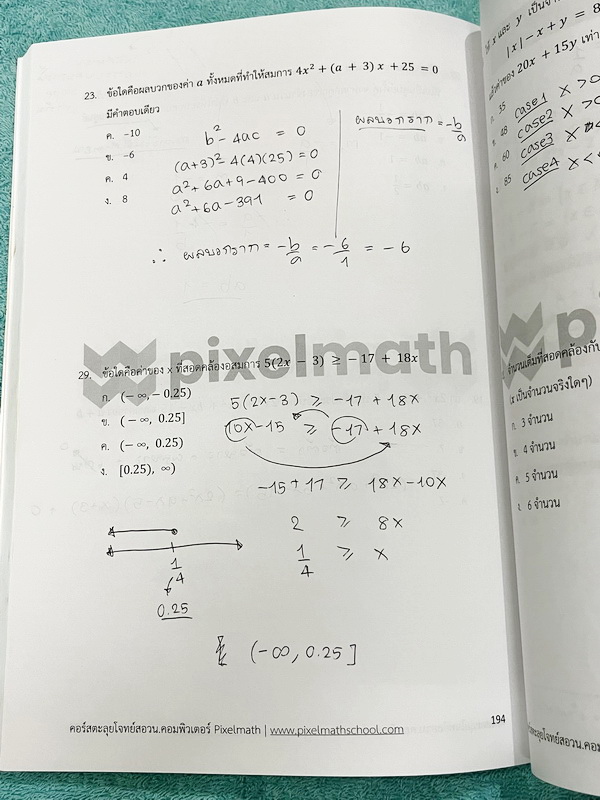 23. ข้อใดคือผลบวกของค่า a ทั้งหมดที่ทำให้สมการ 4x² + (a + 3) x + 25 = 0
มีคำตอบเดียว
ค. −10
ข. −6
ค. 4
ง. 8
b² - 4ac = 0
(a+3)² - 4(4)(25) = 0
a² + 6a + 9 - 400 = 0
a² + 6a - 391 = 0
ผลบวกราก = -b/a
∴ ผลบวกราก = -b/a = -6/1 = -6
pixelmath
29. ข้อใดคือค่าของ x ที่สอดคล้องอสมการ 5(2x − 3) ≥ −17 + 18x
ก. (−∞, −0.25)
ข. (−∞, 0.25]
ค. (−∞, 0.25)
ง. [0.25), ∞)
5(2x-3) ≥ -17 + 18x
10x - 15 ≥ -17 + 18x
-15 + 17 ≥ 18x - 10x
2 ≥ 8x
1/4 ≥ x
1/4
0.25
(-∞, 0.25]
194
คอร์สตะลุยโจทย์สอวน.คอมพิวเตอร์ Pixelmath | www.pixelmathschool.com
x และ y เป็นจำ
|x| − x + y = 8
ค่าของ 20x + 15y เท่า
ก. 35
ข. 48
ค. 60
ง. 85
case1 x >0
case2 x >0
case3 x
case4 x <
จำนวนเต็มที่สอดคล้องกับ
(x เป็นจำนวนจริงใดๆ)
ก. 3 จำนวน
ข. 4 จำนวน
ค. 5 จำนวน
ง. 6 จำนวน
คอร์สตะลุยโจทย์สอวน.คอ